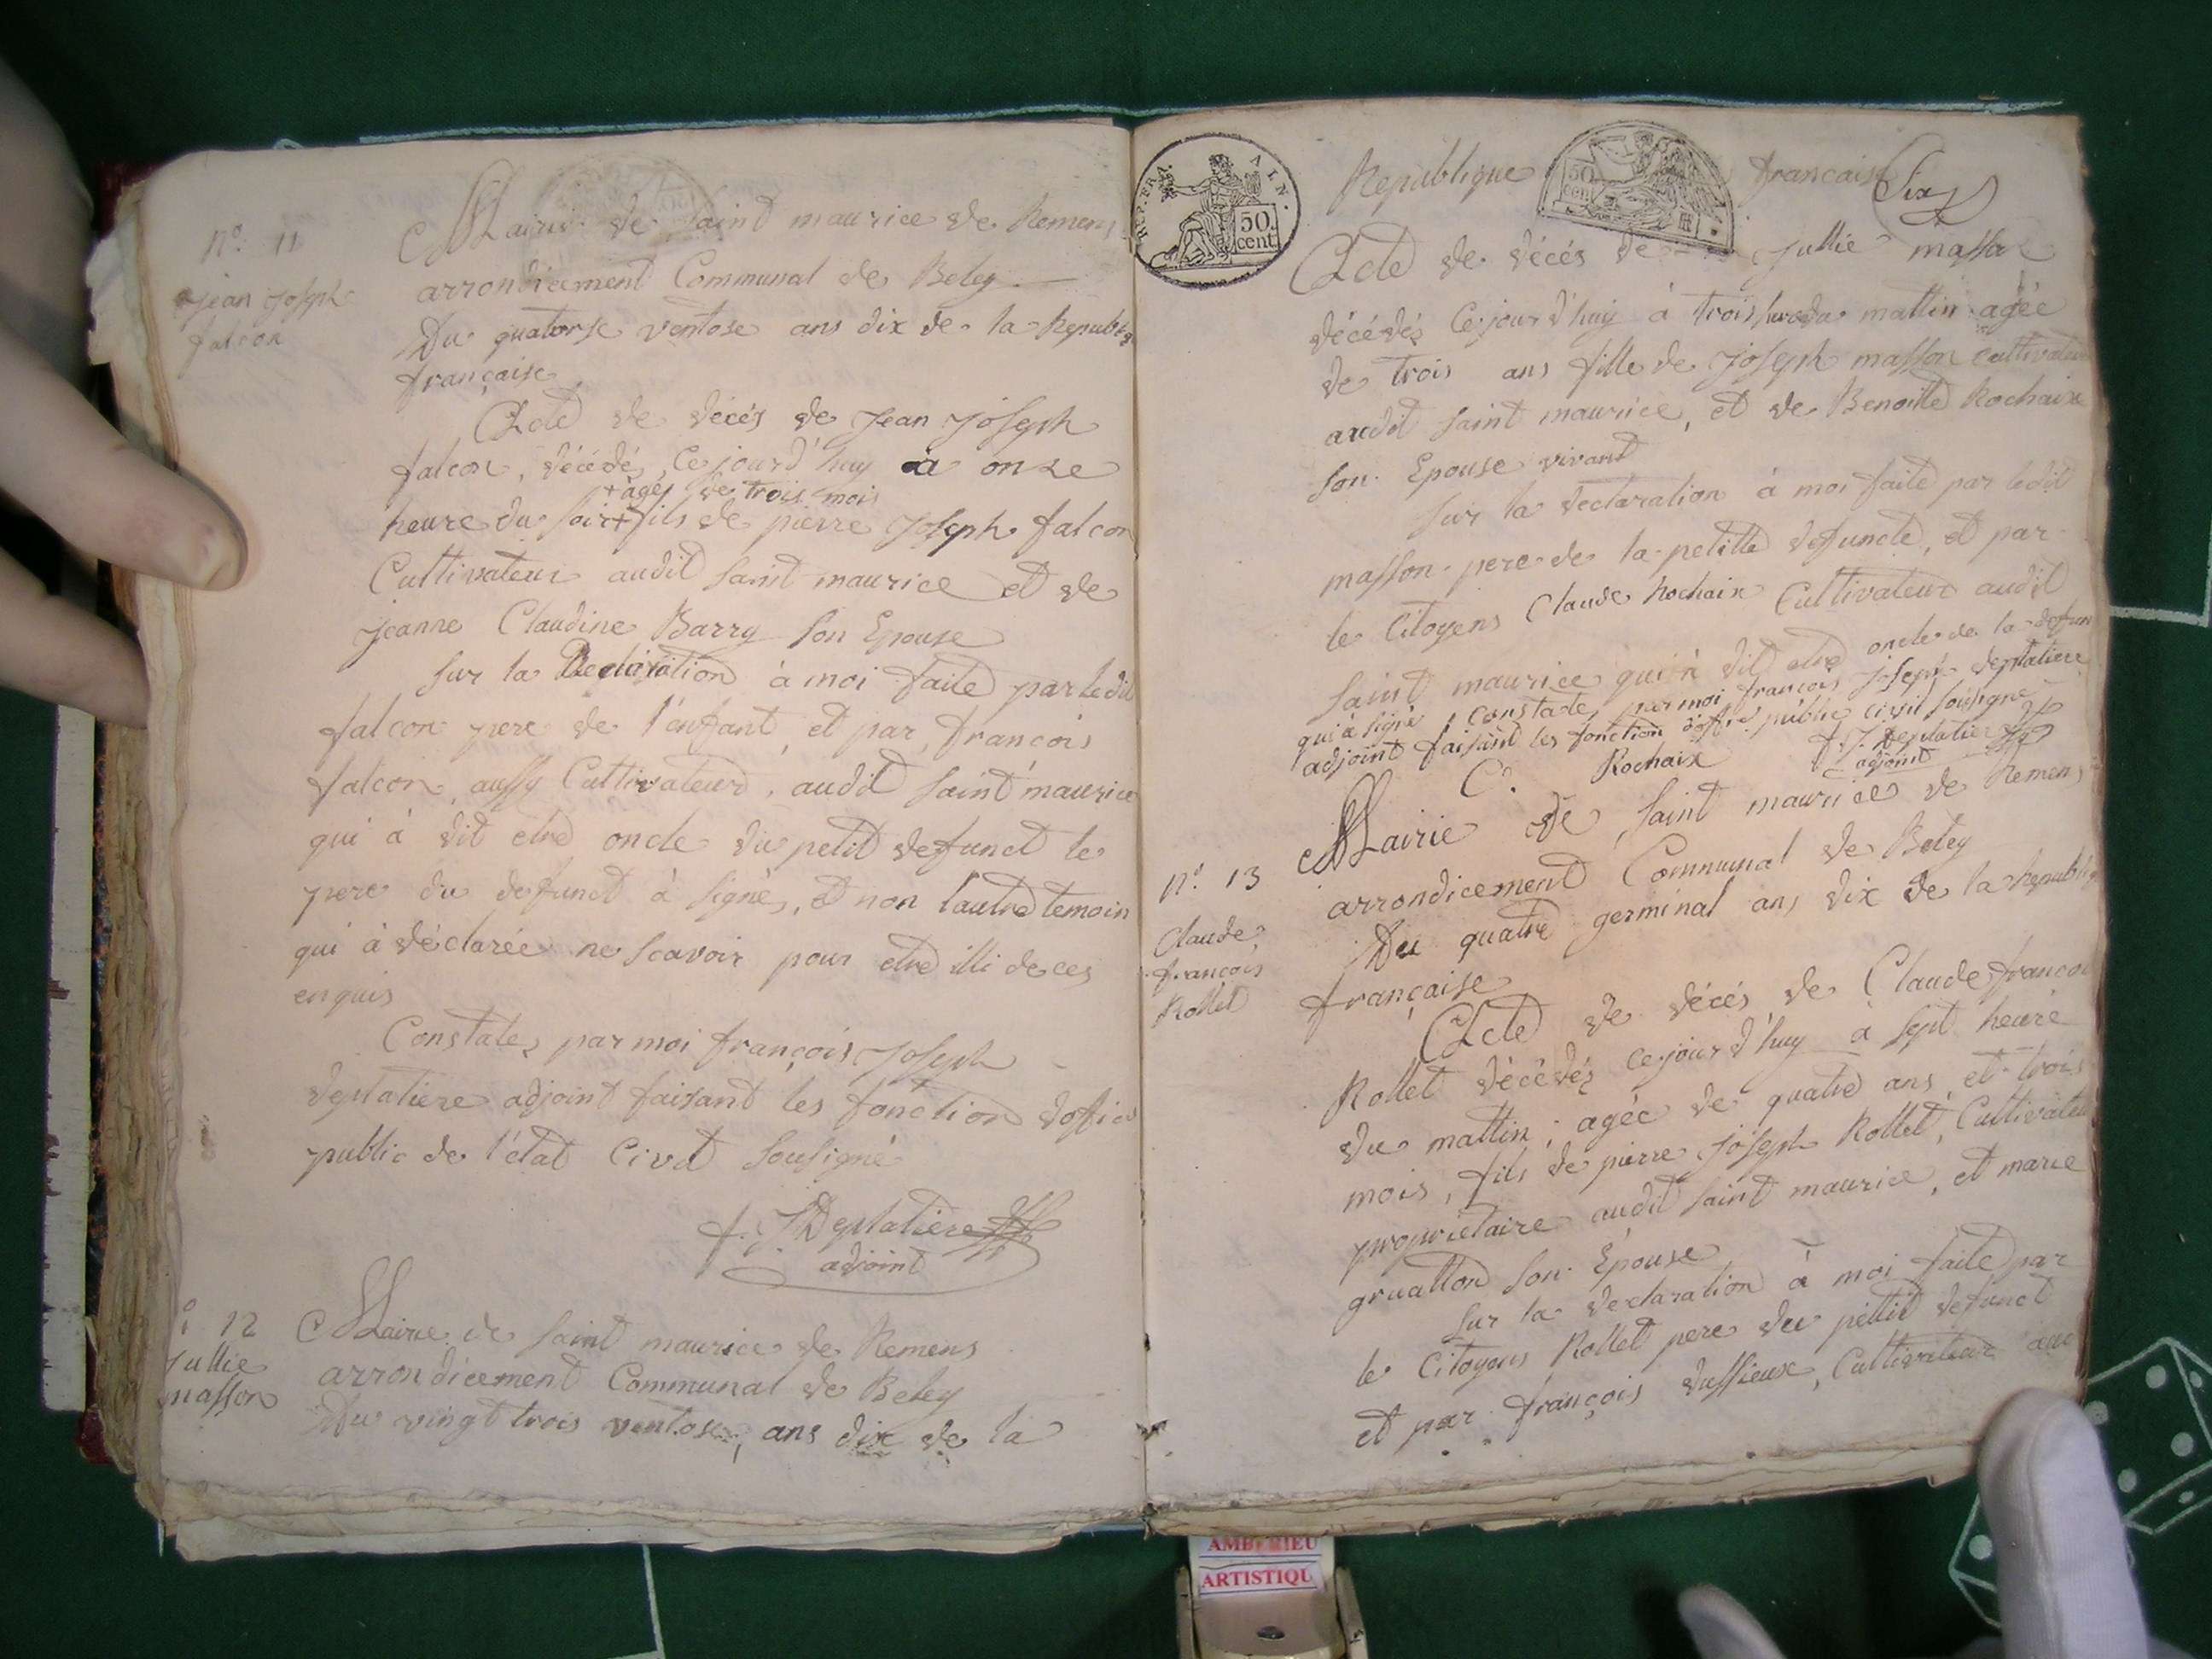 n.° 11
Jean Joseph
falcon
Mairie de saint maurice de Remens
arrondicement Communal de Beley
Du quatorse ventose ans dix de la Republiq
française
Acte de décés de Jean Joseph
falcon, décédés, Ce jourd'huy à onze
+ agés de trois mois
heure du soir + fils de pierre Joseph falcon
Cultivateur audit saint maurice et de
jeanne Claudine Barry son Epouse
Sur la Declaration à moi faite par ledit
falcon pere de l'enfant, et par, françois
falcon, aussy Cultivateur, audit saint maurice
qui à dit etre oncle du petit defunct le
pere du defunct à signés, et non lautre temoin
qui à déclarée ne scavoir pour etre illi de ces
enquis
Constates par moi françois Joseph
Deplatiere adjoint faisant les fonction dofici
public de l'état Civil sousigné
f. J. Deplatiere
adjoint
° 12
Jullie
masson
Mairie de saint maurice de Remens
arrondicement Communal de Beley
Du vingt trois ventose, ans dix de la
REP. FRA. AIN.
50 cent
50 cent
Republique française
Six
Acte de décés de Jullie masson
décédés Ce jourd'huy à trois heure du mattin agée
de trois ans fille de Joseph masson cultivateur
audit saint maurice, et de Benoitte Rochaix
son Epouse vivant
Sur la declaration à moi faite par ledit
masson pere de la petitte defuncte, et par
le Citoyens Claude Rochaix Cultivateur audit
saint maurice qui à dit etre oncle de la defun
qui à signé, Constate, par moi françois Joseph deplatiere
adjoint faisant les fonction d'offici public civil sousigné
C. Rochaix f. J. Deplatiere
adjoint
n.° 13
Claude
françois
Rollet
Mairie de saint maurice de Remens
arrondicement Communal de Beley
Du quatre germinal ans dix de la republiq
française
Acte de décés de Claude francoi
Rollet décédés ce jourd'huy à sept heure
du mattin, agée de quatre ans, et trois
mois, fils de pierre Joseph Rollet, Cultivateu
proprietaire audit saint maurice, et marie
gruatton son Epouse
Sur la declaration à moi faite par
le Citoyens Rollet pere du petit defunct
et par françois dussieux, Cultivateur au
AMBERIEU
ARTISTIQU